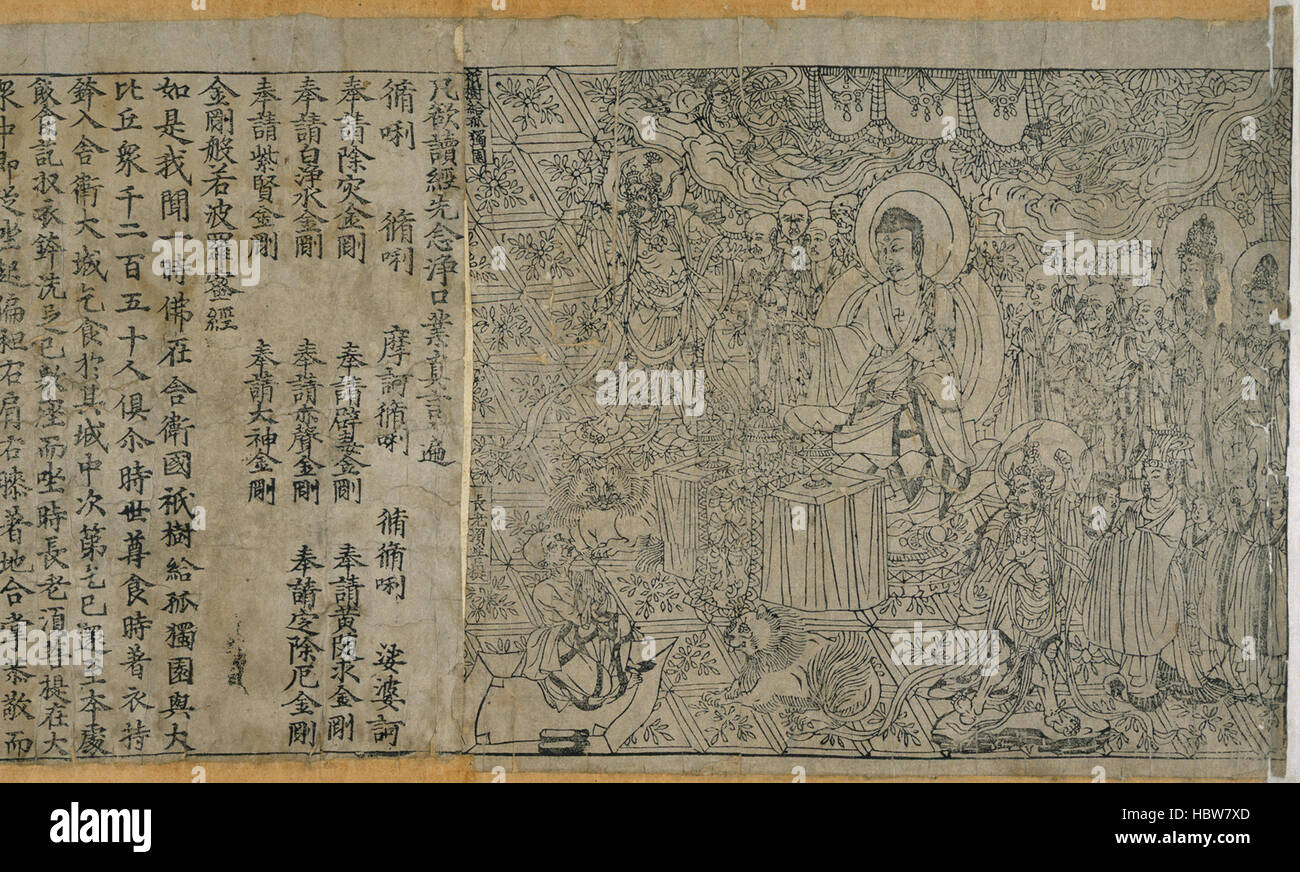 祇樹給孤獨園
長老須菩提
凡欲讀經先念淨口業真言遍
脩唎 脩唎 摩訶脩唎 脩脩唎 娑婆訶
奉請除灾金剛 奉請辟毒金剛 奉請黃隨求金剛
奉請白淨水金剛 奉請赤聲金剛 奉請定除厄金剛
奉請紫賢金剛 奉請大神金剛
金剛般若波羅蜜經
如是我聞一時佛在舍衛國祇樹給孤獨園與大
比丘衆千二百五十人俱尒時世尊食時著衣持
鉢入舍衛大城乞食於其城中次第乞已還至本處
飯食訖收衣鉢洗足已敷座而坐時長老須菩提在大
衆中即從坐起偏袒右肩右膝著地合掌恭敬而
alamy
alamy stock photo
HBW7XD
www.alamy.com